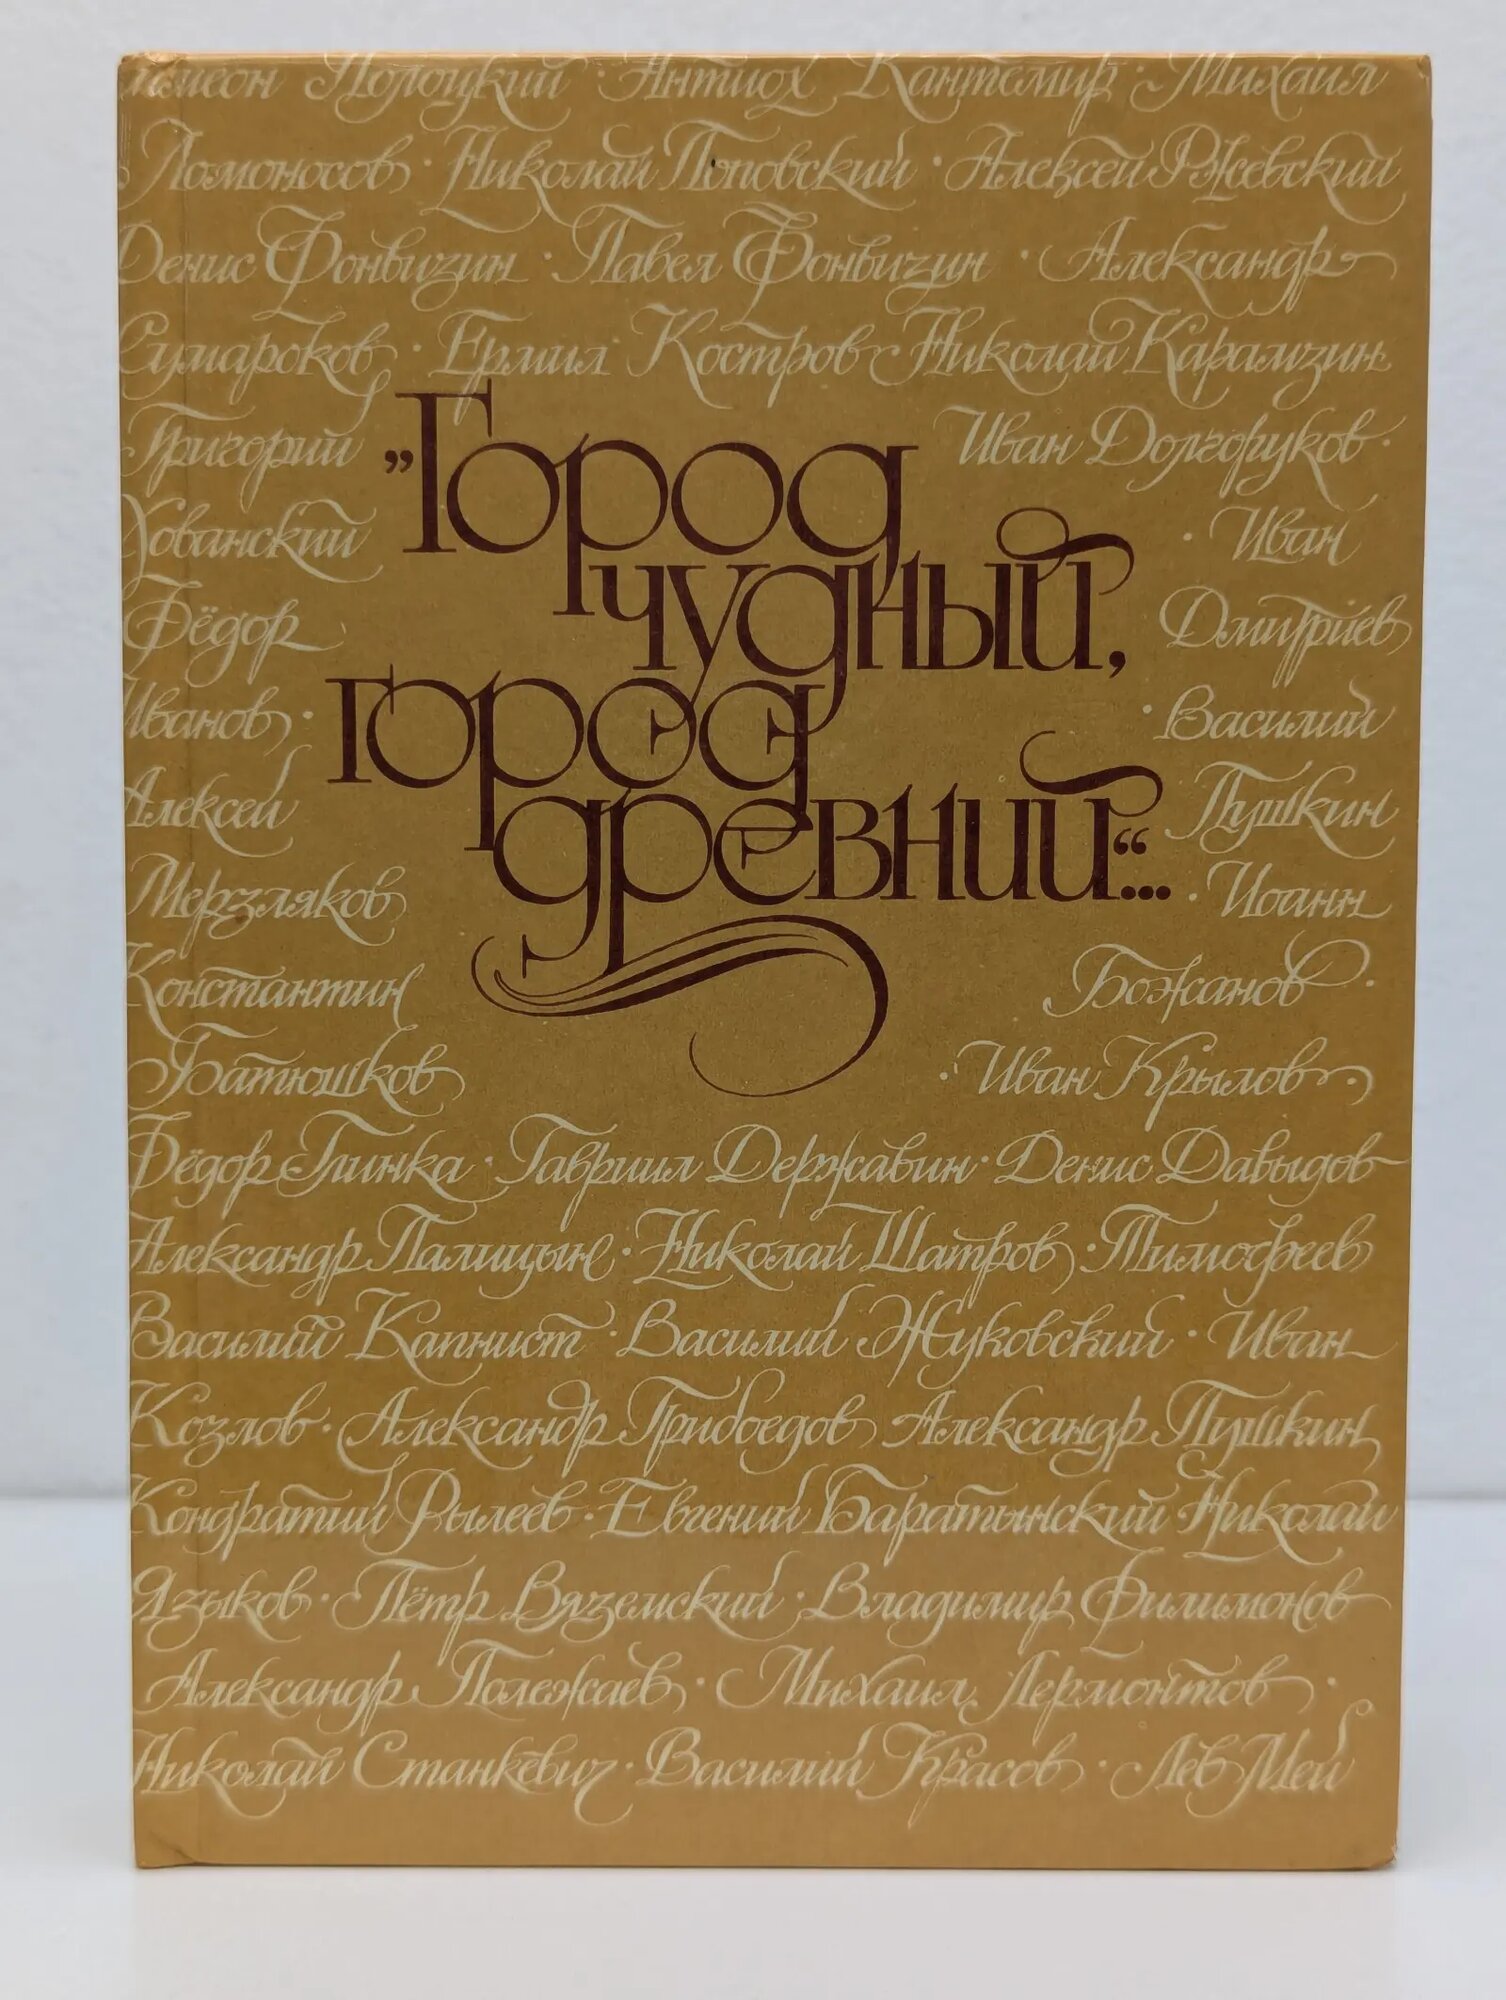 Симеон Полоцкий · Антиох Кантемир · Михаил
Ломоносов · Николай Поповский · Алексей Ржевский
Денис Фонвизин · Павел Фонвизин · Александр
Сумароков · Ермил Костров Николай Карамзин
Григорий
Иван Долгоруков ·
Хованский
· Иван
Фёдор
Дмитриев
Иванов ·
· Василий
Алексей
Пушкин
Мерзляков
· Иоанн
Константин
Божанов ·
Батюшков
· Иван Крылов ·
„Город
чудный,
город
древний“...
Фёдор Глинка · Гавриил Державин · Денис Давыдов
Александр Палицын · Николай Шатров · Тимофеев
Василий Капнист · Василий Жуковский · Иван
Козлов · Александр Грибоедов Александр Пушкин
Кондратий Рылеев · Евгений Баратынский · Николай
Языков · Пётр Вяземский · Владимир Филимонов
Александр Полежаев · Михаил Лермонтов ·
Николай Станкевич · Василий Красов · Лев Мей